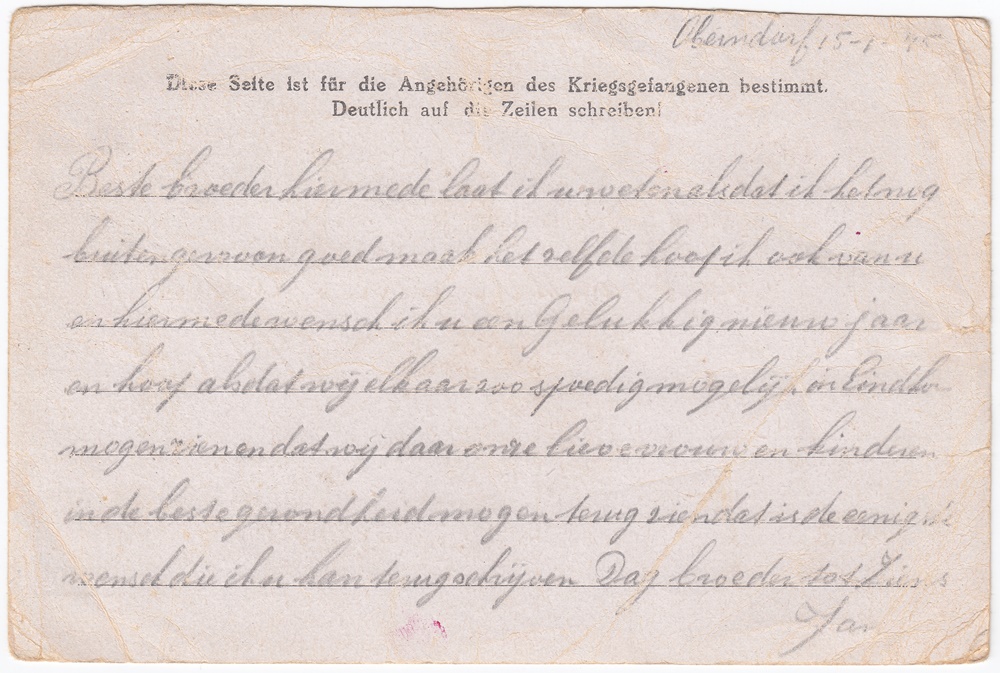 Oberndorf 15-1-45
Diese Seite ist für die Angehörigen des Kriegsgefangenen bestimmt.
Deutlich auf die Zeilen schreiben!
Beste broeder hiermede laat ik u weten alsdat ik het nog
buitengewoon goed maak het zelfde hoop ik ook van u
en hiermede wensch ik u een Gelukkig nieuw jaar
en hoop alsdat wij elkaar zoo spoedig mogelijk in Eindho
mogen zien en dat wij daar onze lieve vrouw en kinderen
in de beste gezondheid mogen terug zien dat is de eenigste
wensch die ik u kan terugschrijven Dag broeder tot Ziens
Jan